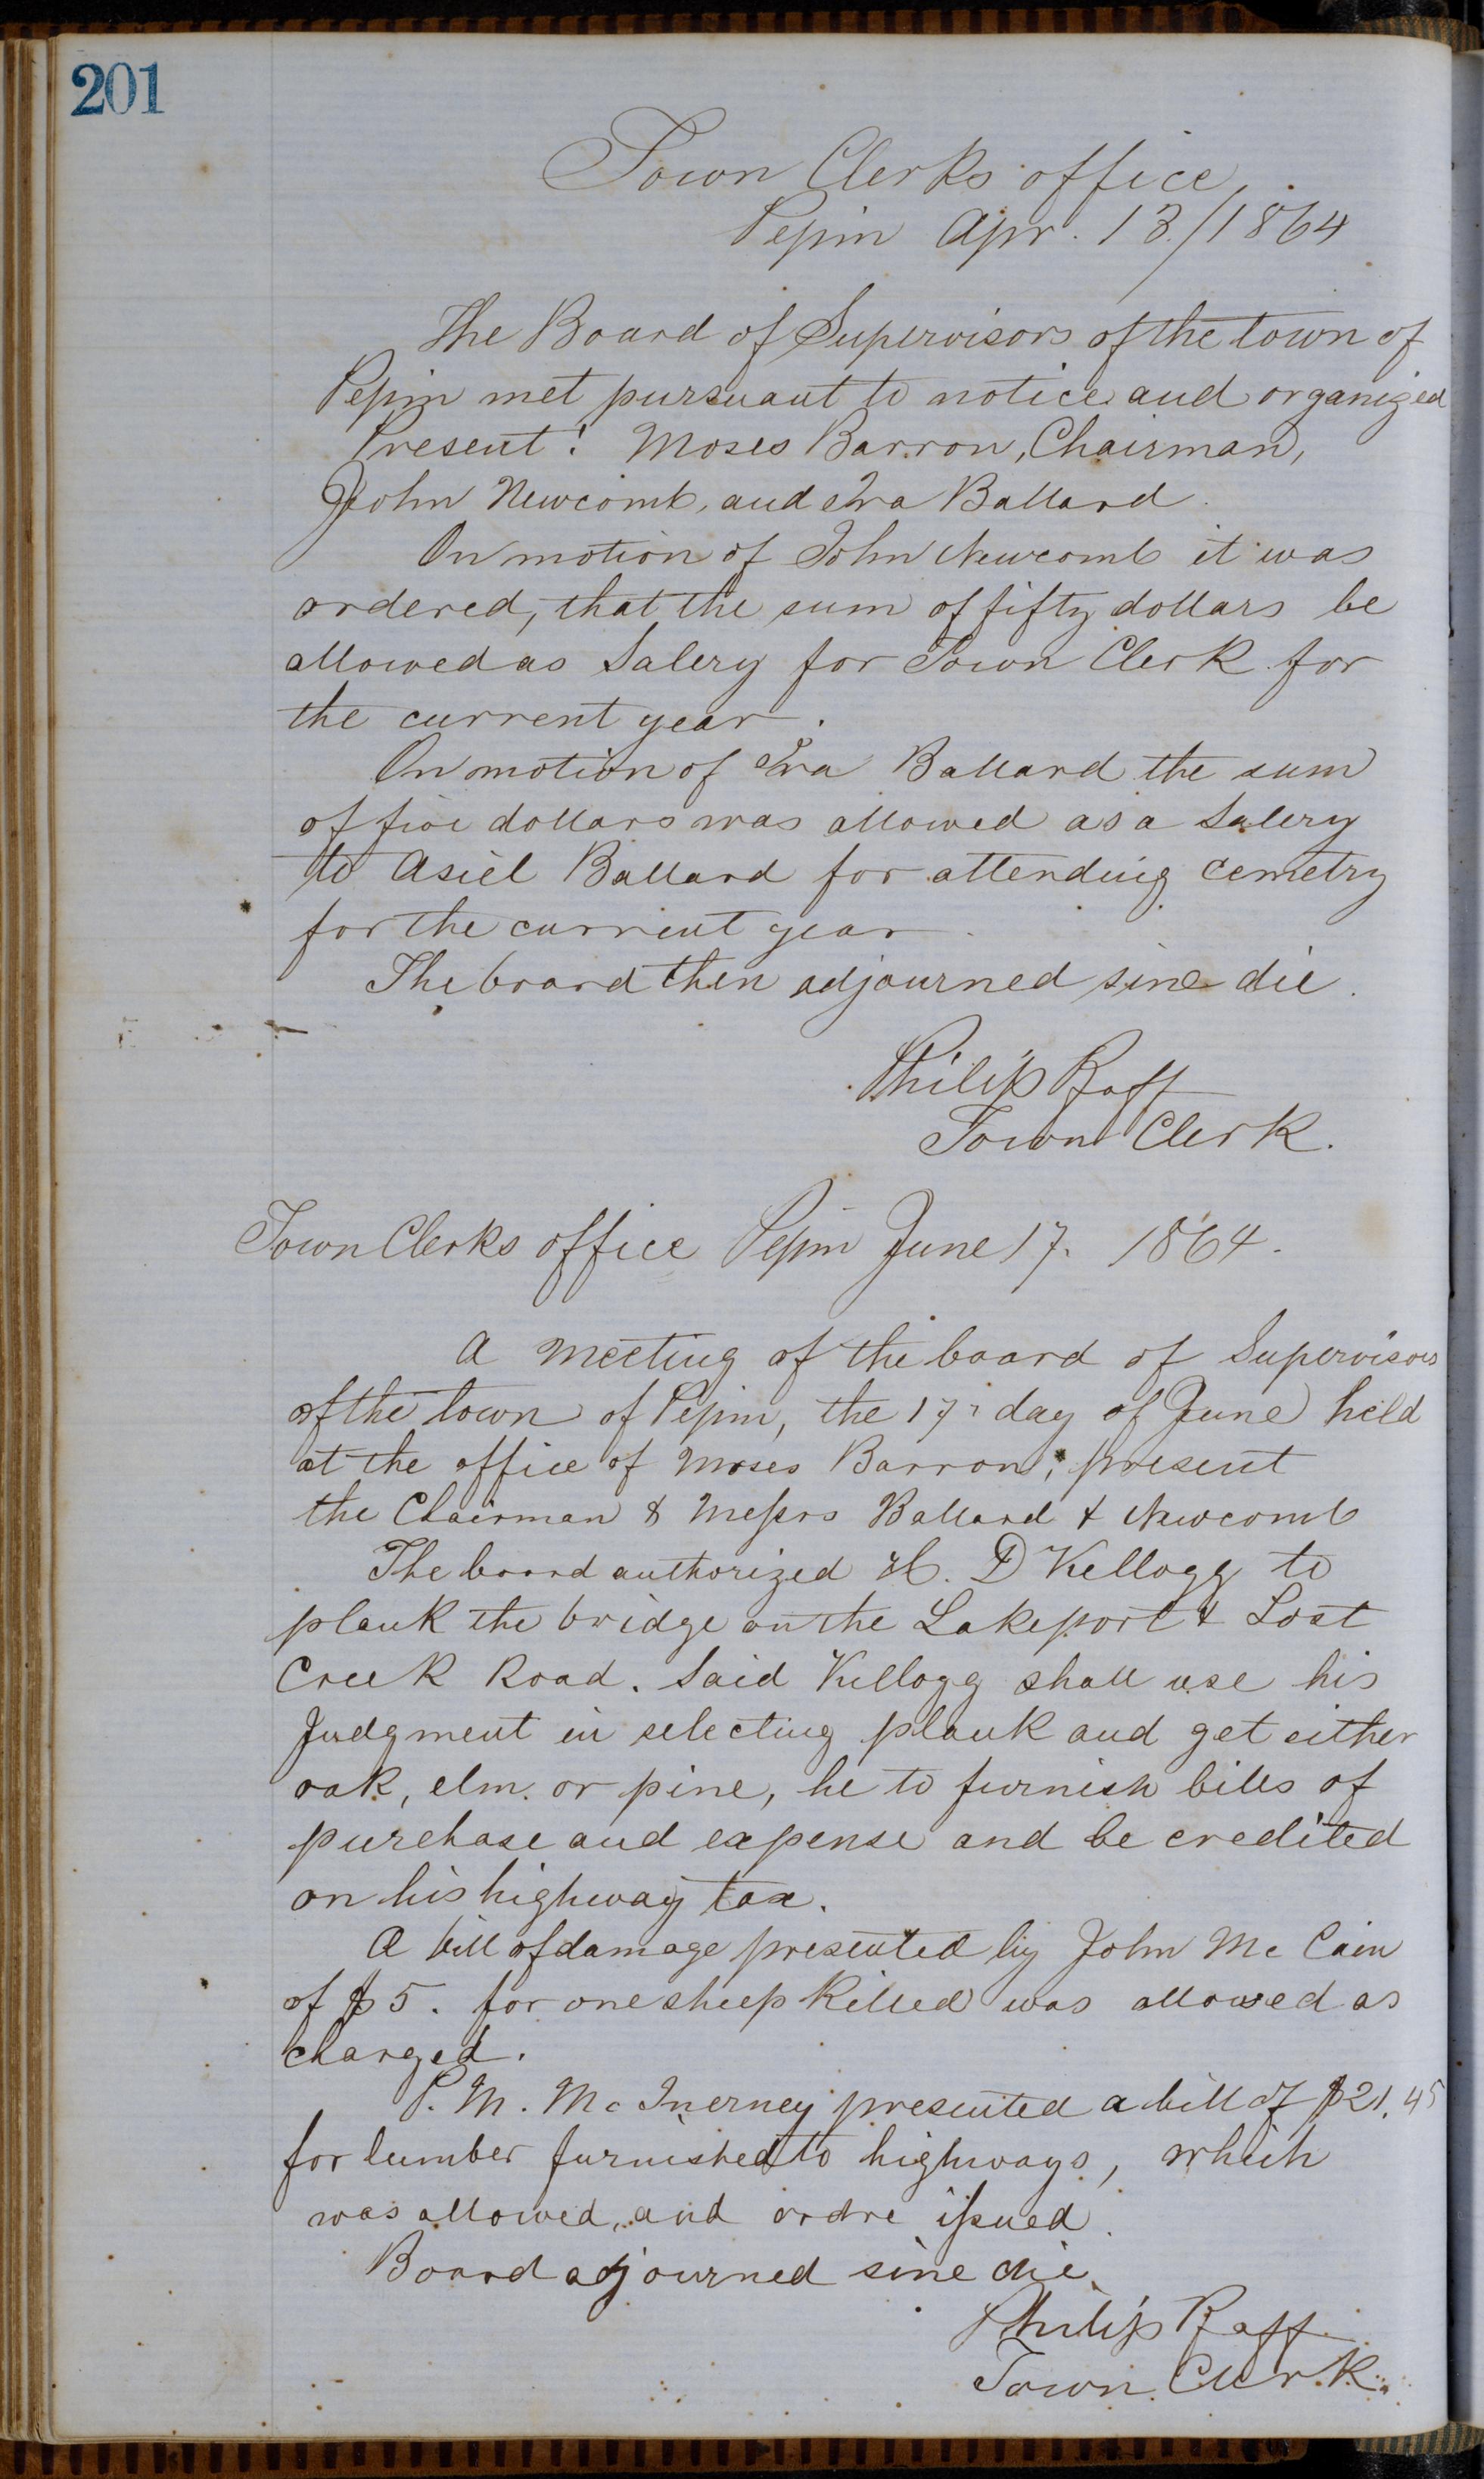 201
Town Clerks office,
Pepin Apr. 13./1864
The Board of Supervisors of the town of
Pepin met pursuant to notice and organized
Present: Moses Barron, Chairman,
John Newcomb, and Ira Ballard.
On motion of John Newcomb it was
ordered, that the sum of fifty dollars be
allowed as Salery for Town Clerk for
the current year.
On motion of Ira Ballard the sum
of five dollars was allowed as a Salery
to Asiel Ballard for attending cemetry
for the current year.
The board then adjourned sine die.
Philip Raff
Town Clerk.
Town Clerks office Pepin June 17. 1864.
A meeting of the board of Supervisors
of the town of Pepin, the 17" day of June held
at the office of Moses Barron; present
the Chairman & Messrs Ballard & Newcomb
The board authorized H. D Kellogg to
plank the bridge on the Lakeport & Lost
Creek Road. Said Kellogg shall use his
Judgment in selecting plank and get either
oak, elm. or pine, he to furnish bills of
purchase and expense and be credited
on his highway tax.
A bill of damage presented by John Mc Cain
of $5. for one sheep killed was allowed as
charged.
P. M. Mc Inerney presented a bill of $21.45
for lumber furnished to highways, which
was allowed, and ordre issued.
Board adjourned sine die.
Philip Raff.
Town Clerk.